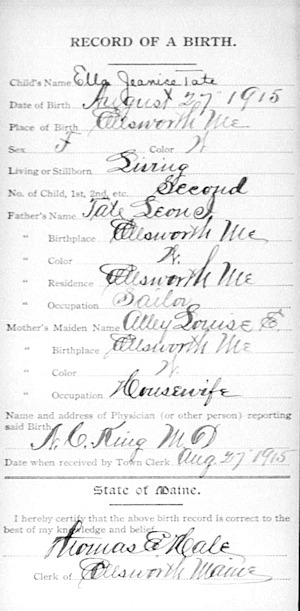 RECORD OF A BIRTH.
Child's Name Ella Jeanice Tate
Date of Birth August 27 1915
Place of Birth Ellsworth Me
Sex F Color W
Living or Stillborn Living
No. of Child, 1st, 2nd, etc. Second
Father's Name Tate Leon S
" Birthplace Ellsworth Me
" Color W.
" Residence Ellsworth Me
" Occupation Sailor
Mother's Maiden Name Alley Louise E.
" Birthplace Ellsworth Me
" Color W.
" Occupation Housewife
Name and address of Physician (or other person) reporting
said Birth
King M D
Date when received by Town Clerk Aug 27 1915
State of Maine.
I hereby certify that the above birth record is correct to the
best of my knowledge and belief.
Thomas E. Hale
Clerk of Ellsworth Maine